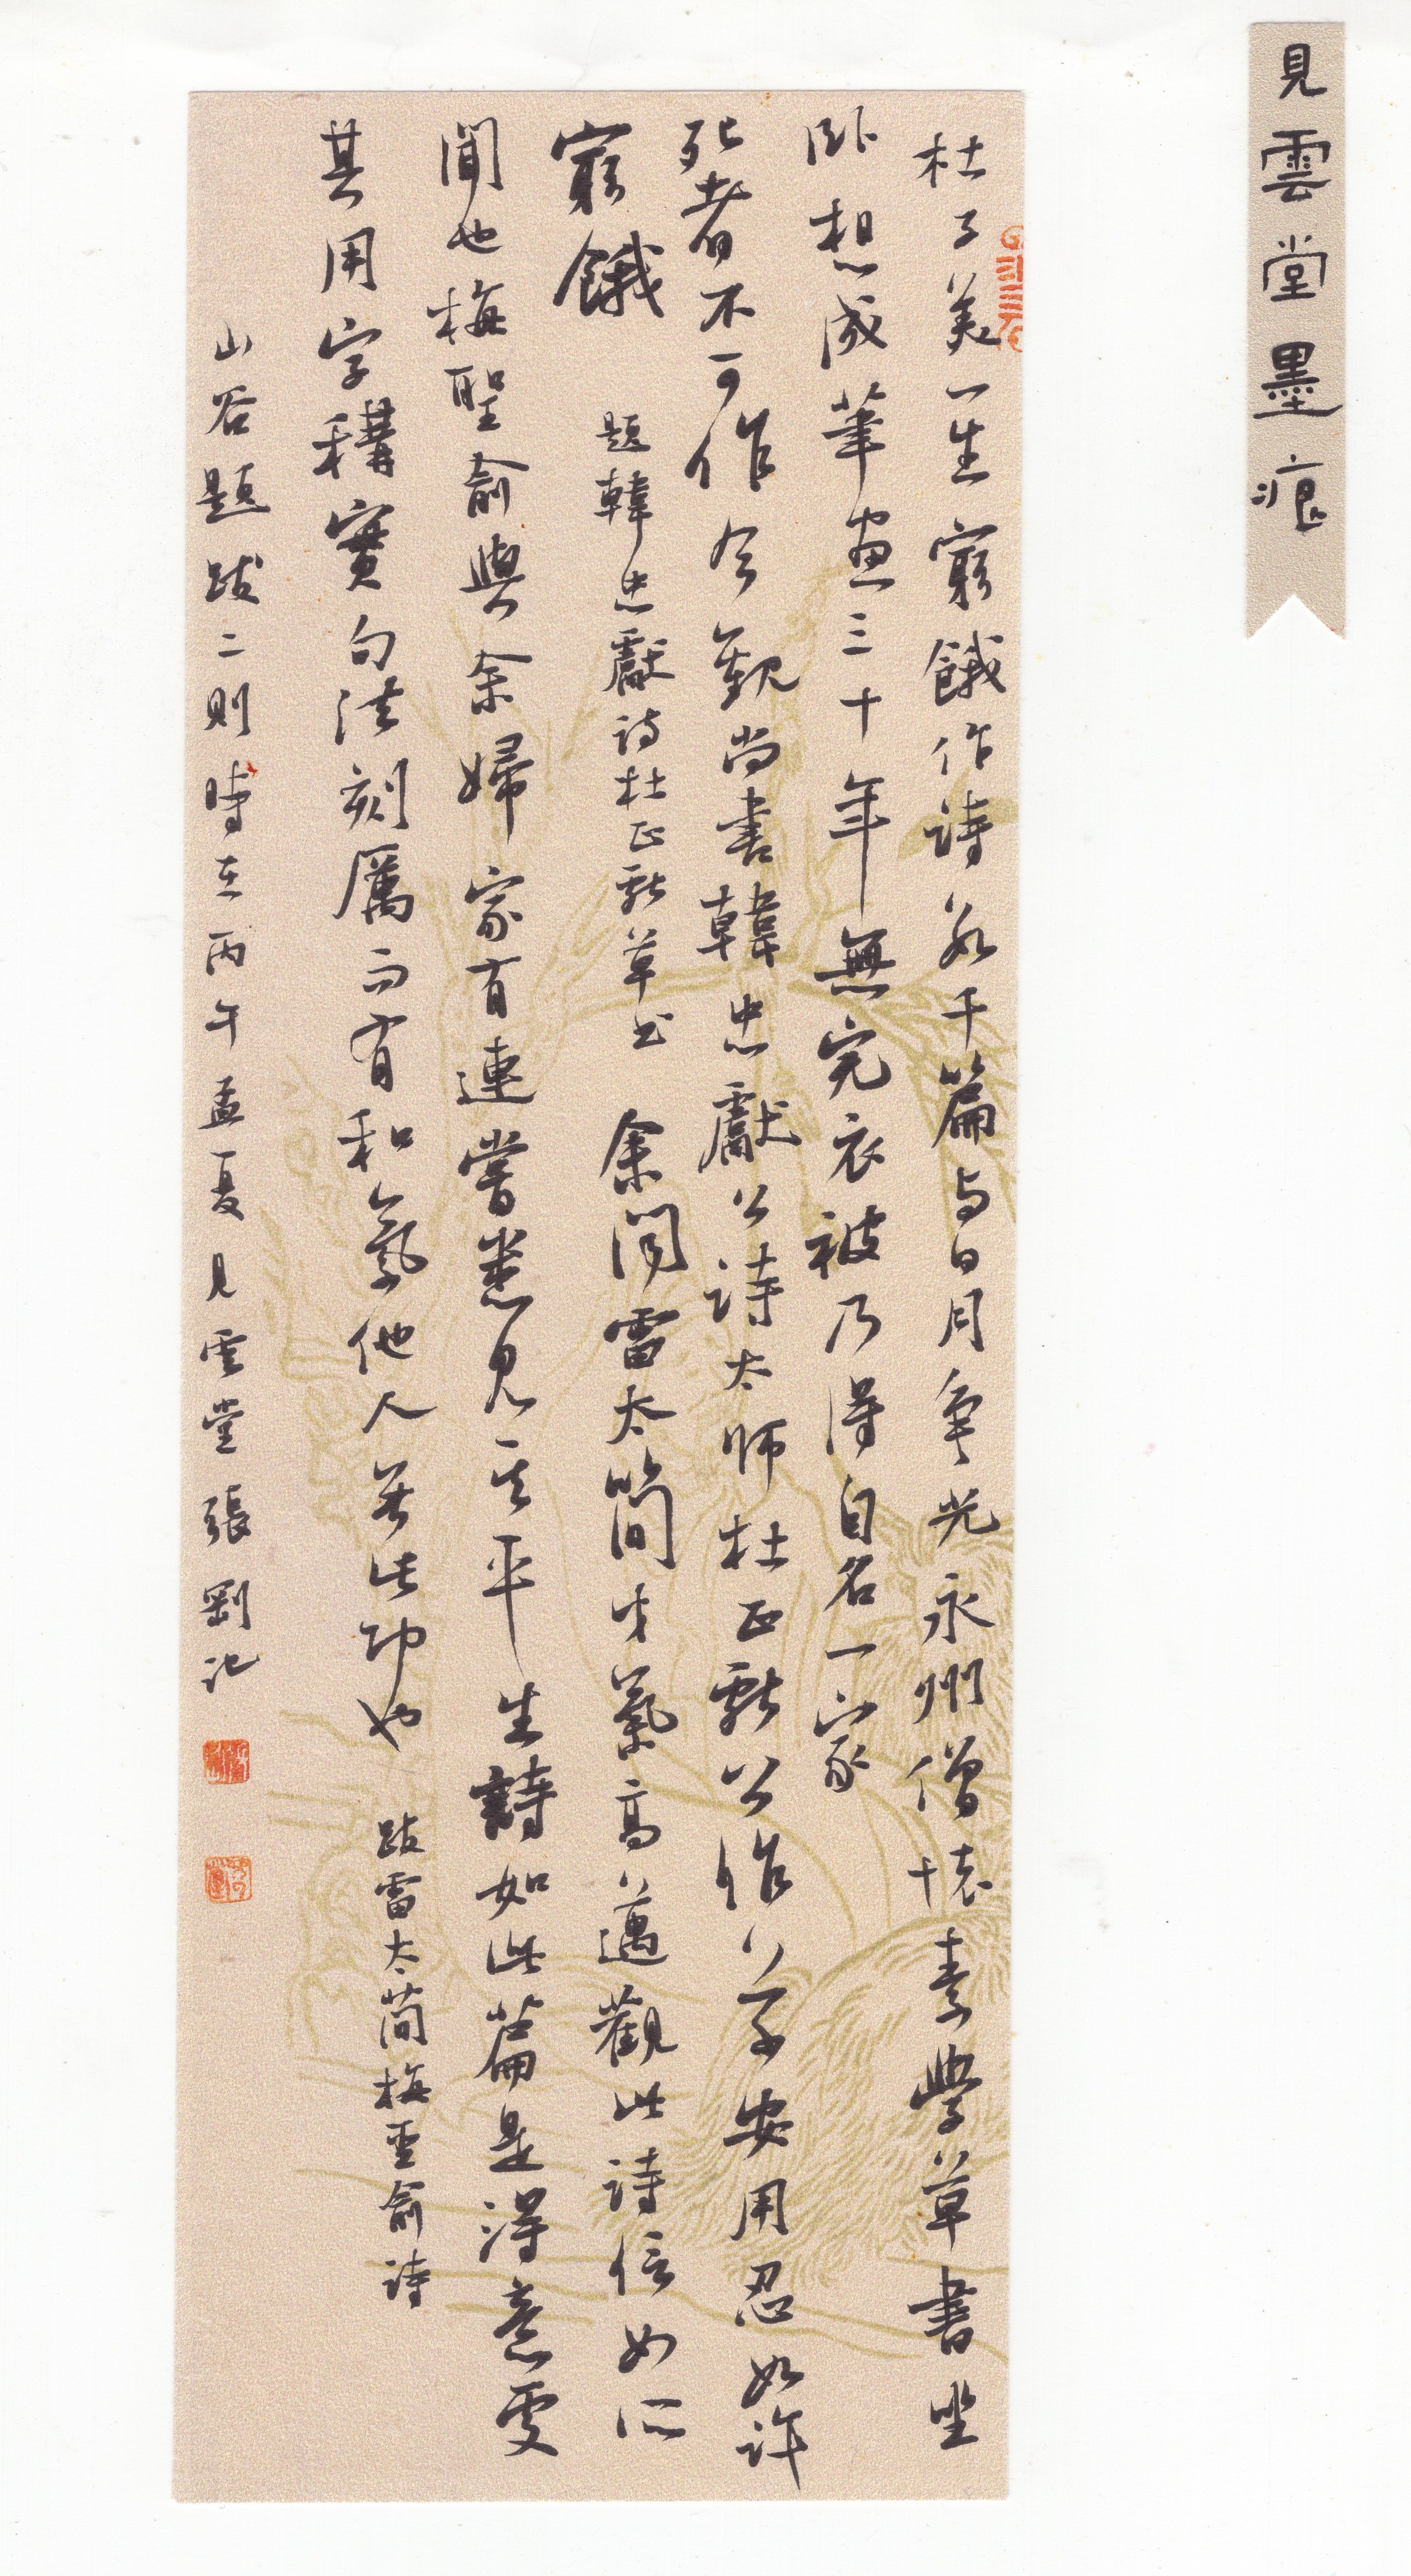 見雲堂墨痕
杜子美一生窮餓作詩數千篇与日月爭光永州僧懷素學草書坐
臥想成筆畫三十年無完衣被乃得自名一家
死者不可作今觀尚書韓忠獻公詩太師杜正獻公作草安用忍如許
窮餓 題韓忠獻詩杜正獻草書 余聞雷太簡才氣高邁觀此詩信如所
聞也梅聖俞與余婦家有連嘗悉見其平生詩如此篇是得意處
其用字穩實句法刻厲而有和氣他人無此功也 跋雷太简梅聖俞詩
山谷題跋二則時在丙午孟夏見雲堂張剛記